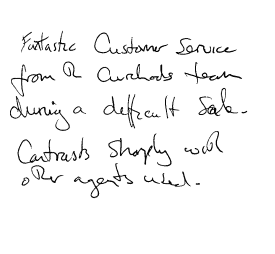 Fantastic Customer Service
from R Orchards team
during a difficult Sale.
Contrasts Sharply with
other agents used.